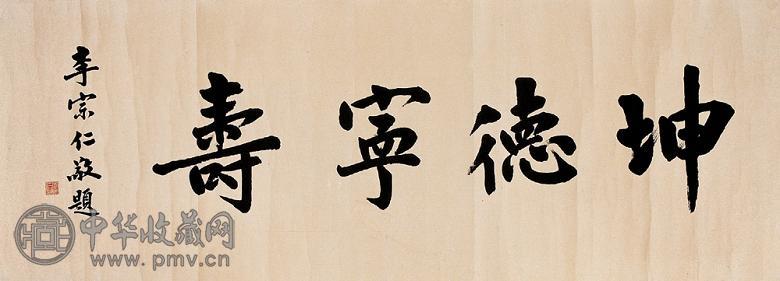 坤德寧壽
李宗仁敬題
中华收藏网
www.pmv.cn